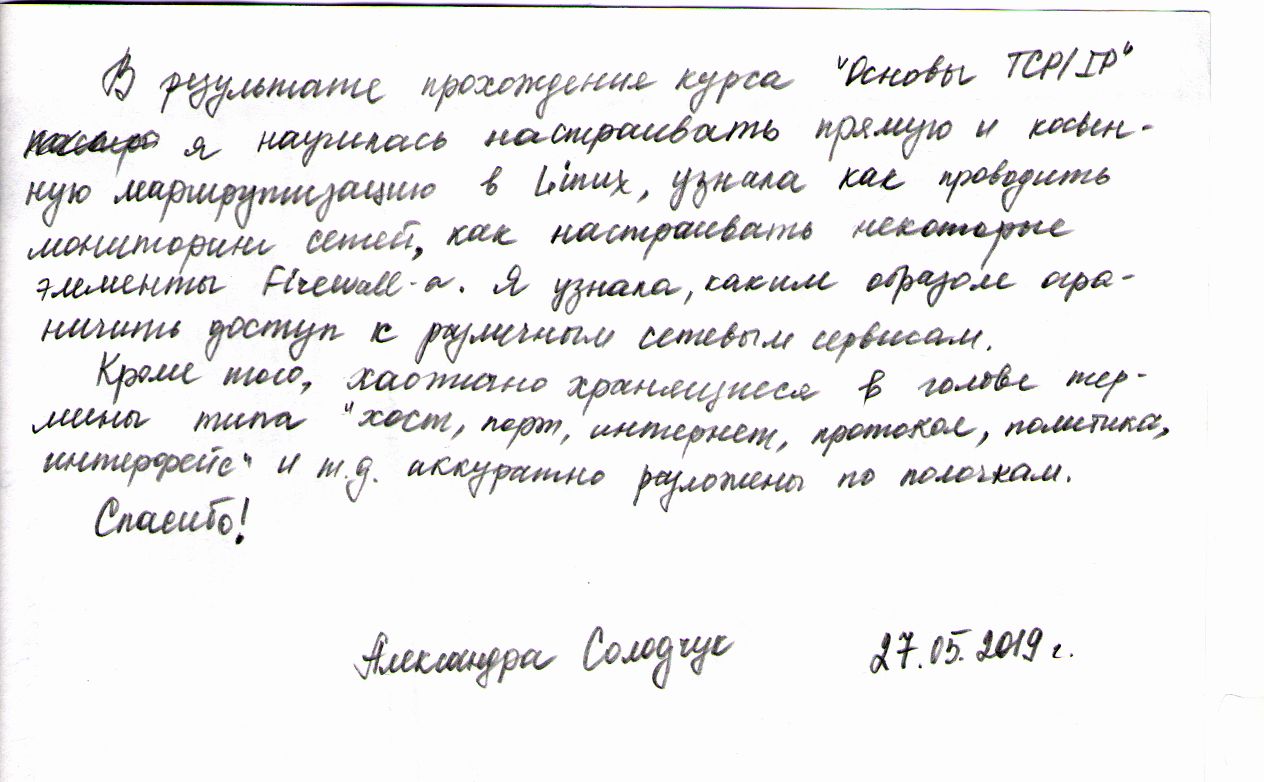 В результате прохождение курса "Основы TCP/IP"
я научилась настраивать прямую и косвен-
ную маршрутизацию в Linux, узнала как проводить
мониторинг сетей, как настраивать некоторые
элементы Firewall-а. Я узнала, каким образом огра-
ничить доступ к различным сетевым сервисам.
Кроме того, хаотично хранящиеся в голове тер-
мины типа "хост, порт, интернет, протокол, политика,
интерфейс" и т.д. аккуратно разложены по полочкам.
Спасибо!
Александра Солодчук 27.05.2019 г.